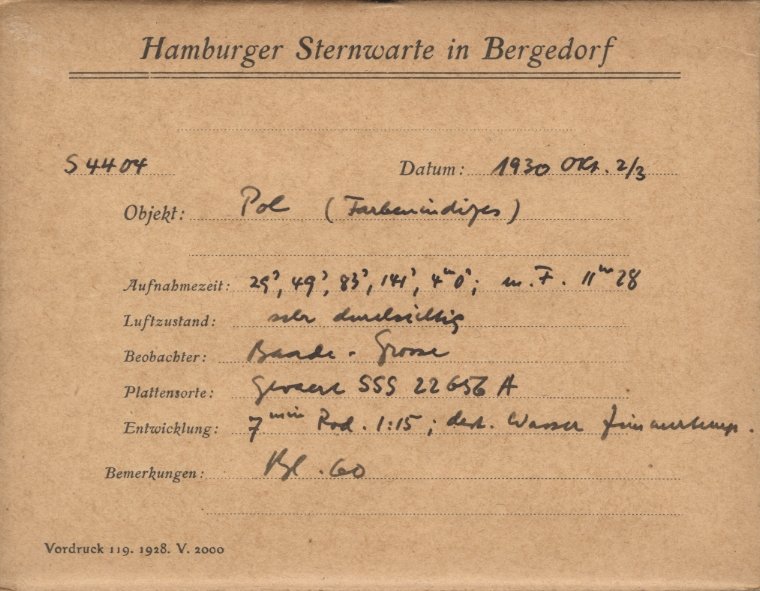 Hamburger Sternwarte in Bergedorf
S 4404 Datum: 1930 Okt. 2/3
Objekt: Pol (Farbenindizes)
Aufnahmezeit: 29ˢ, 49ˢ, 83ˢ, 141ˢ, 4ᵐ0ˢ; m. F. 11ᵐ 28
Luftzustand: sehr durchsichtig
Beobachter: Baade - Grosse
Plattensorte: Gevaert SSS 22656 A
Entwicklung: 7 ᵐⁱⁿ Rod. 1:15; dest. Wasser Zimmertemp.
Bemerkungen: Bl. 60
Vordruck 119. 1928. V. 2000